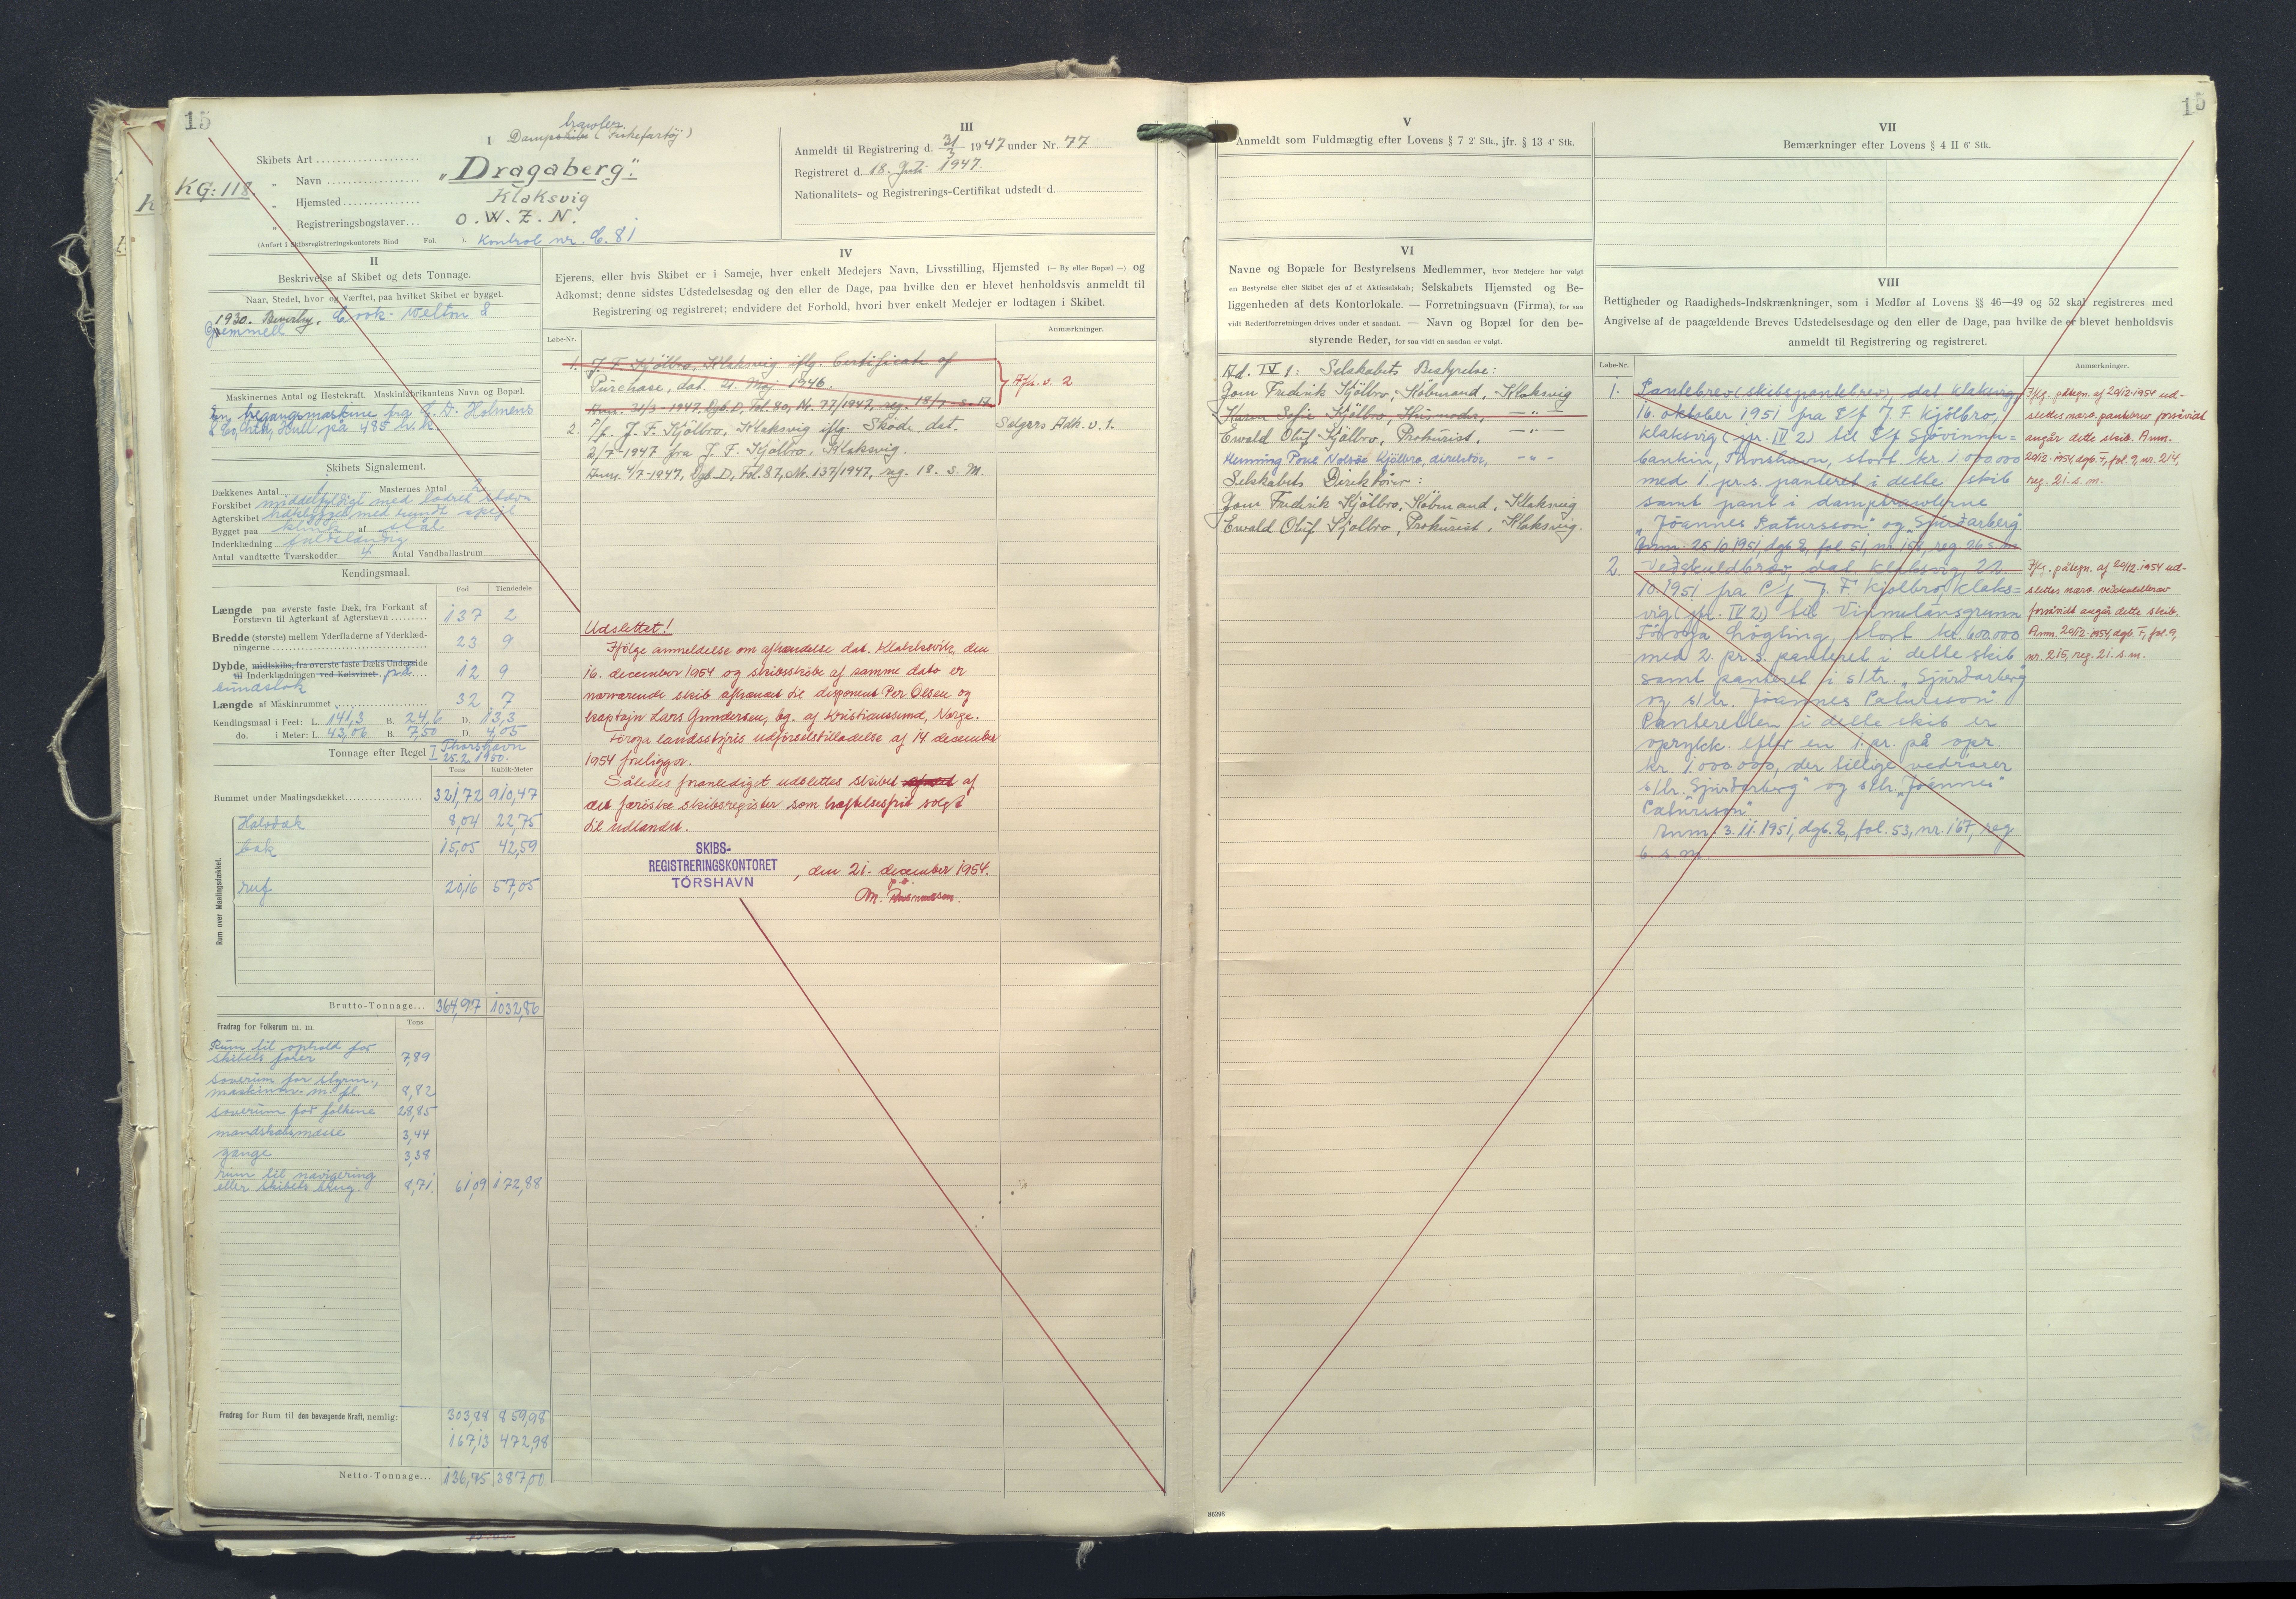 15
KG: 118.
I
Damptrawler (Fiskefartöj)
Skibets Art
„ Navn „Dragaberg“.
„ Hjemsted Klaksvig
„ Registreringsbogstaver O.W.Z.N.
(Anført i Skibsregistreringskontorets Bind Fol. ). Kontrol nr. C. 81
II
Beskrivelse af Skibet og dets Tonnage.
Naar, Stedet, hvor og Værftet, paa hvilket Skibet er bygget.
1930. Beverly, Cook-Welton &
Gemmell
Maskinernes Antal og Hestekraft. Maskinfabrikantens Navn og Bopæl.
En tregangsmaskine fra C. D. Holmens
& Co, Ltd, Hull på 485 h.k.
Skibets Signalement.
Dækkenes Antal 1 Masternes Antal 2
Forskibet middelfyldigt med lodret stævn
Agterskibet hækbygget med rundt spejl
Bygget paa klink af stål
Inderklædning fuldstændig
Antal vandtætte Tværskodder 4 Antal Vandballastrum
Kendingsmaal.
Fod Tiendedele
Længde paa øverste faste Dæk, fra Forkant af
Forstævn til Agterkant af Agterstævn 137 2
Bredde (største) mellem Yderfladerne af Yderklæd-
ningerne 23 9
Dybde, midtskibs, fra øverste faste Dæks Underside
til Inderklædningen ved Kølsvinet 12 9
bundstok
Længde af Maskinrummet 32 7
Kendingsmaal i Feet: L. 141,3 B. 24,6 D. 13,3
do. i Meter: L. 43,06 B. 7,50 D. 4,05
Tonnage efter Regel I Thorshavn
25.2.1950.
Tons Kubik-Meter
Rummet under Maalingsdækket 321,72 910,47
Rum over Maalingsdækket.
Halvdæk 8,04 22,75
bak 15,05 42,59
ruf 20,16 57,05
Brutto-Tonnage... 364,97 1032,86
Fradrag for Folkerum m. m. Tons
Rum til ophold for
skibets fører 7,89
soverum for styrm.,
maskinm. m. fl. 8,82
soverum for folkene 28,85
mandskabsmesse 3,44
gange 3,38
rum til navigering
eller skibets brug. 8,71. 61,09 172,88
303,88 859,98
Fradrag for Rum til den bevægende Kraft, nemlig:
167,13 472,98
Netto-Tonnage... 136,75 387,00
III
Anmeldt til Registrering d. 31/3 1947 under Nr. 77
Registreret d. 18. Juli 1947.
Nationalitets- og Registrerings-Certifikat udstedt d.
IV
Ejerens, eller hvis Skibet er i Sameje, hver enkelt Medejers Navn, Livsstilling, Hjemsted (— By eller Bopæl —) og
Adkomst; denne sidstes Udstedelsesdag og den eller de Dage, paa hvilke den er blevet henholdsvis anmeldt til
Registrering og registreret; endvidere det Forhold, hvori hver enkelt Medejer er lodtagen i Skibet.
Løbe-Nr.
Anmærkninger.
1. J. F. Kjölbro, Klaksvig iflg. Certificate of
Purchase, dat. 21. Maj 1946. Afh. v. 2
Anm. 31/3-1947, Dgb. D, Fol. 80, Nr. 77/1947, reg. 18/7 s. A.
2. P/f. J. F. Kjölbro, Klaksvig iflg. Sköde, dat. Sælgers Adk. v. 1.
2/7-1947 fra J. F. Kjölbro, Klaksvig.
Anm. 4/7-1947, Dgb. D, Fol. 87, Nr. 137/1947, reg. 18. s. M.
Udslettet!
Ifølge anmeldelse om afhændelse dat. Klakksvik, den
16. december 1954 og skibsskøde af samme dato er
nærværende skib afhændet til disponent Per Olsen og
kaptajn Lars Gundersen, bg. af Kristianssund, Norge.
Føroya landsstýris udførselstilladelse af 14 december
1954 foreligger.
Således foranlediget udslettes skibet af
det færøske skibsregister som hæftelsesfrit solgt
til udlandet.
SKIBS-
REGISTRERINGSKONTORET
TÓRSHAVN
, den 21. december 1954.
p.v.
M. Rasmussen.
V
Anmeldt som Fuldmægtig efter Lovens § 7 2' Stk., jfr. § 13 4' Stk.
VI
Navne og Bopæle for Bestyrelsens Medlemmer, hvor Medejere har valgt
en Bestyrelse eller Skibet ejes af et Aktieselskab; Selskabets Hjemsted og Be-
liggenheden af dets Kontorlokale. — Forretningsnavn (Firma), for saa
vidt Rederiforretningen drives under et saadant. — Navn og Bopæl for den be-
styrende Reder, for saa vidt en saadan er valgt.
Ad. IV 1: Selskabets Bestyrelse:
Jom Fredrik Kjölbro, Köbmand, Klaksvig
Karen Sofie Kjölbro, Husmoder, — „ —
Ewald Oluf Kjölbro, Prokurist, — „ —
Henning Poul Nolsöe Kjölbro, direktör, — „ —
Selskabets Direktörer:
Jom Fredrik Kjölbro, Köbmand, Klaksvig
Ewald Oluf Kjölbro, Prokurist, Klaksvig.
15
VII
Bemærkninger efter Lovens § 4 II 6' Stk.
VIII
Rettigheder og Raadigheds-Indskrænkninger, som i Medfør af Lovens §§ 46—49 og 52 skal registreres med
Angivelse af de paagældende Breves Udstedelsesdage og den eller de Dage, paa hvilke de er blevet henholdsvis
anmeldt til Registrering og registreret.
Løbe-Nr.
Anmærkninger.
1. Pantebrev (skibspantebrev), dat. Klaksvig,
16. oktober 1951 fra P/f J. F. Kjölbro,
Klaksvig (jfr. IV 2) til P/f Sjóvinnu=
bankin, Thorshavn, stort kr. 1.000.000
med 1. pr. s. panteret i dette skib
samt pant i damptrawlerne
„Jóannes Patursson“ og „Sjúrðarberg“.
Anm. 25.10.1951, dgb. E, fol 51, nr. 154, reg. 26 s. m.
Iflg. påtegn. af 20/12-1954 ud-
slettes nærv. pantebrev forsåvidt
angår dette skib. Anm.
20/12-1954, dgb. F, fol. 9, nr. 214,
reg. 21. s. m.
2. Veðskuldbrøv, dat. Klaksvig, 22.
10.1951 fra P/f J. F. Kjölbro, Klaks=
vig (jfr. IV 2) til Vinnulánsgrunn
Föroya Lögting, stort kr. 600.000
med 2. pr. s. panteret i dette skib
samt panteret i s/tr. „Sjúrðarberg“
og s/tr. „Jóannes Patursson“
Panteretten i dette skib er
oprykk. efter en 1. pr. på opr.
kr. 1.000.000, der tillige vedrører
s/tr. „Sjúrðarberg“ og s/tr. „Jóannes
Patursson“
Anm. 3.11.1951, dgb. E, fol. 53, nr. 167, reg
6. s. m.
Iflg. påtegn. af 20/12-1954 ud-
slettes nærv. veðskuldbrøv
forsåvidt angår dette skib.
Anm. 20/12-1954, dgb. F, fol. 9,
nr. 215, reg. 21. s. m.
86298